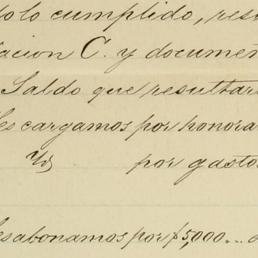 dolo cumplido, res
iacion C. y docume
Saldo que resultar
les cargamos por honora
por gasto
les abonamos por $5,000...